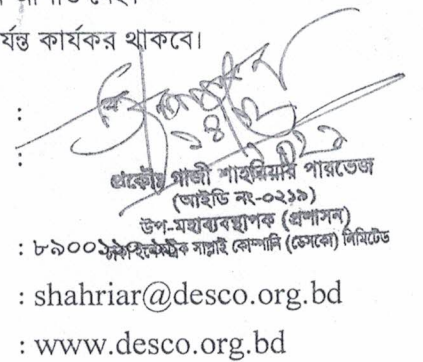 র্যন্ত কার্যকর থাকবে।
:
:
প্রকৌঃ গাজী শাহরিয়ার পারভেজ
(আইডি নং-০২১৯)
উপ-মহাব্যবস্থাপক (প্রশাসন)
সাপ্লাই কোম্পানি (ডেসকো) লিমিটেড
: ৮৯০০
: shahriar@desco.org.bd
: www.desco.org.bd